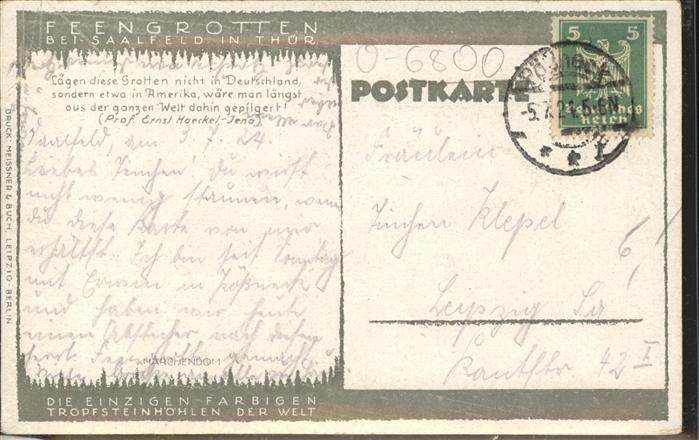 FEENGROTTEN
BEI SAALFELD IN THÜR.
Lägen diese Grotten nicht in Deutschland,
sondern etwa in Amerika, wäre man längst
aus der ganzen Welt dahin gepilgert!
(Prof. Ernst Haeckel-Jena)
Saalfeld, am 3. 7. 24.
Liebes Tinchen! Du wirst
nicht wenig staunen, wenn
du diese Karte von mir
erhältst. Ich bin seit Sonntag
mit Erwin in Pößneck
und haben wir heute
einen Abstecher nach diesen
Feengrotten gemacht.
MÄRCHENDOM
DIE EINZIGEN FARBIGEN
TROPFSTEINHÖHLEN DER WELT
DRUCK: MEISSNER & BUCH, LEIPZIG-BERLIN
O-6800
POSTKARTE
5 5
Deutsches
Reich
-5.7.24. 5-6N
Fräulein
Tinchen Klepel
Leipzig Sa
Kantstr 42 II
6,-